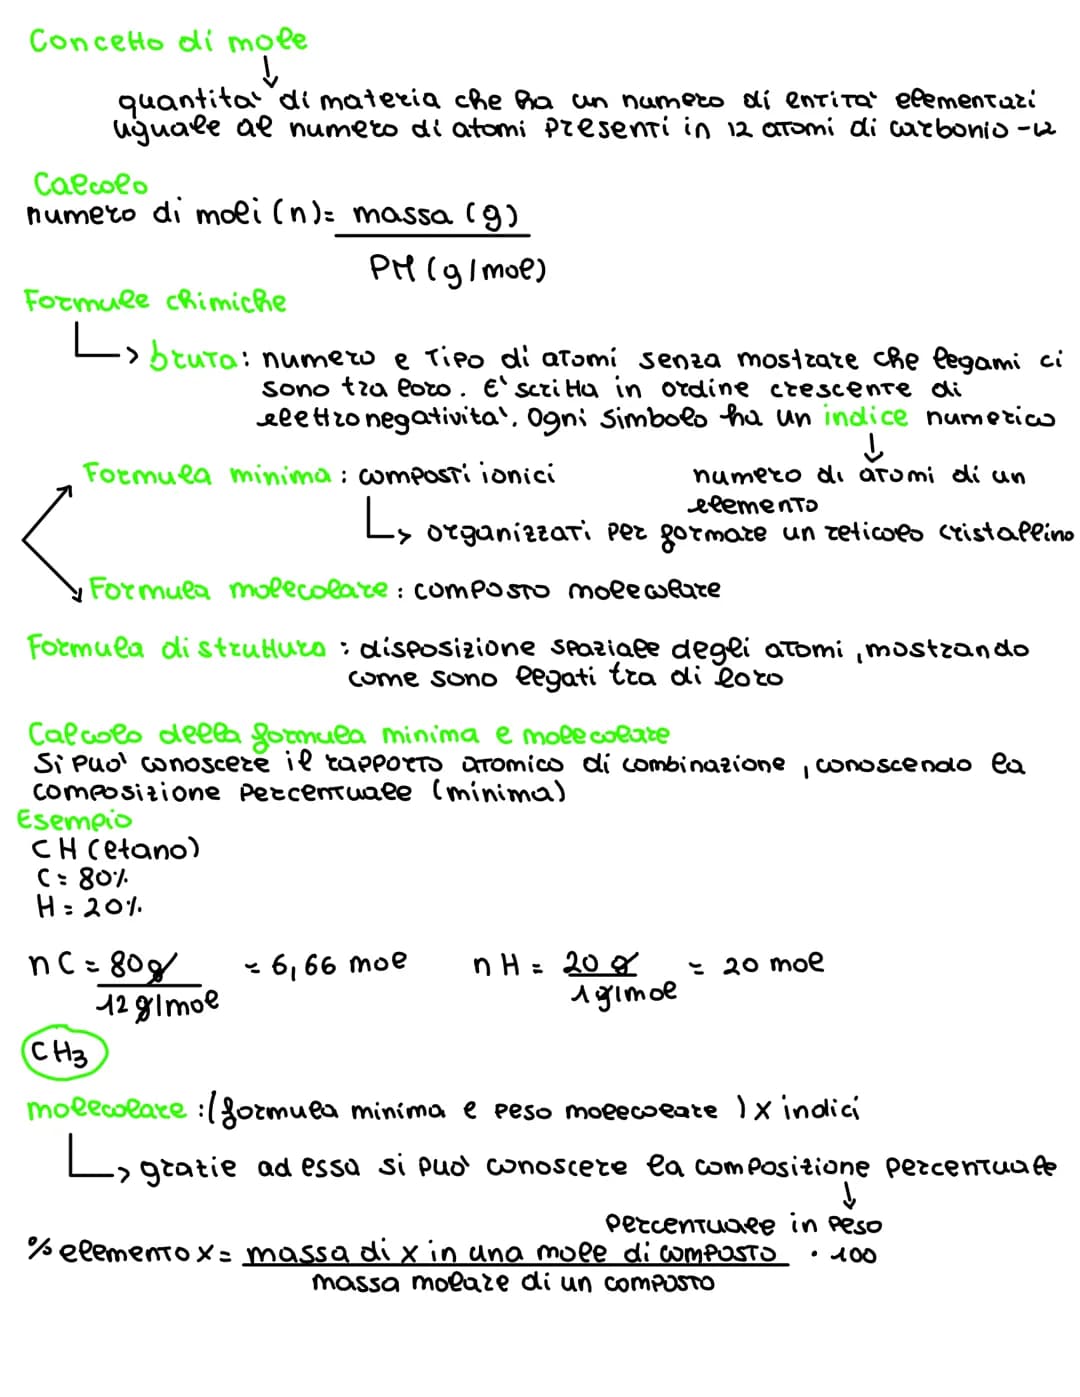 Concetto di mole
↓
quantita' di materia che ha un numero di entita' elementari
uguale al numero di atomi presenti in 12 atomi di carbonio-12
Calcolo
numero di moli (n)= massa (g)
PM (g/mol)
Formule chimiche
↳ bruta: numero e tipo di atomi senza mostrare che legami ci
sono tra loro. E' scritta in ordine crescente di
elettronegativita'. Ogni simbolo ha un indice numerico
↓
Formula minima: composti ionici
numero di atomi di un
elemento
↳ organizzati per formare un reticolo cristallino
Formula molecolare: composto molecolare
Formula di struttura: disposizione spaziale degli atomi, mostrando
come sono legati tra di loro
Calcolo della formula minima e molecolare
Si puo' conoscere il rapporto atomico di combinazione, conoscendo la
composizione percentuale (minima)
Esempio
CH (etano)
C= 80%
H= 20%
nC = 80g = 6,66 mol nH = 20 g = 20 mol
12 g/mol 1g/mol
CH₃
molecolare: (formula minima e peso molecolare) x indici
↳ gratie ad essa si puo' conoscere la composizione percentuale
↓
percentuale in peso
% elemento x= massa di x in una mole di composto · 100
massa molare di un composto